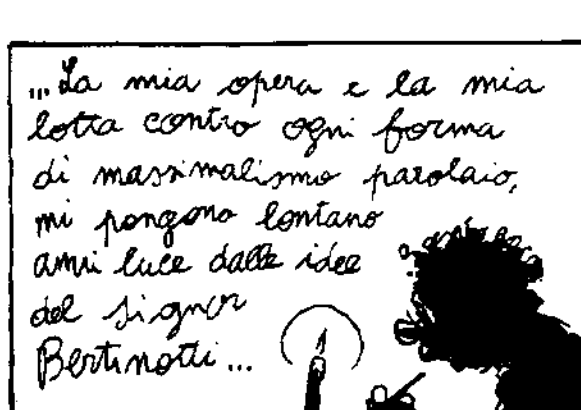 ...La mia opera e la mia
lotta contro ogni forma
di massimalismo parolaio,
mi pongono lontano
anni luce dalle idee
del signor
Bertinotti...